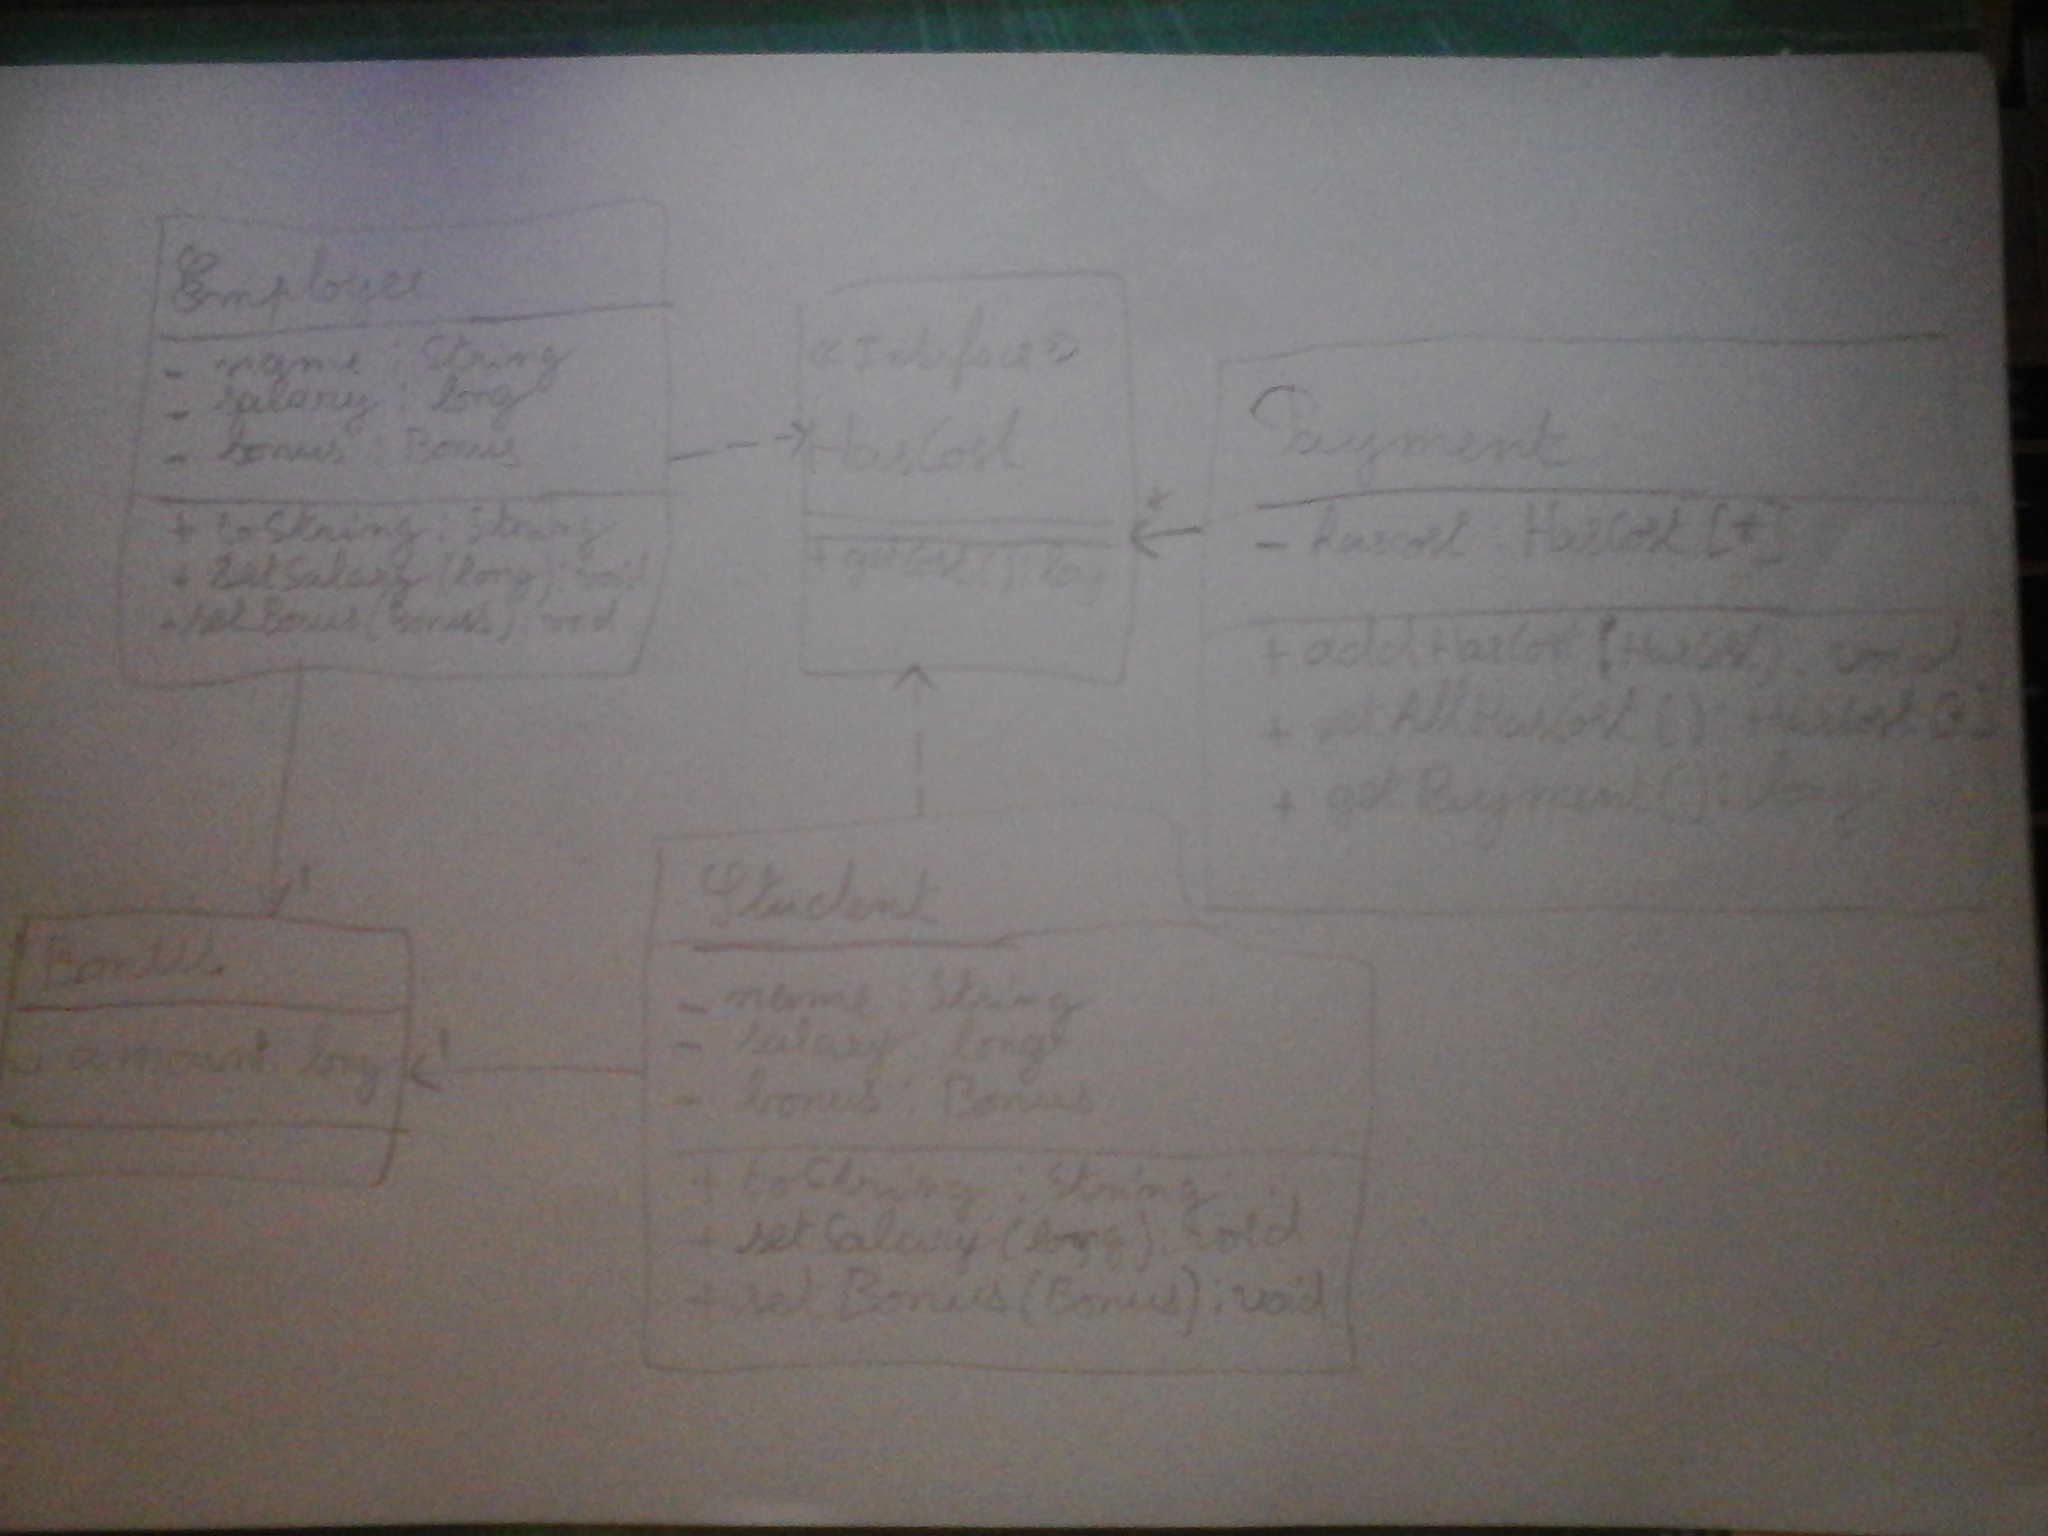 Employee
- name : String
- salary : long
- bonus : Bonus
+ toString : String
+ setSalary (long) : void
+ setBonus (Bonus) : void
«Inteface»
HasCost
+ getCost() : long
*
Payment
- hascost : HasCost [*]
+ addHasCost (HasCost) : void
+ getAllHasCost () : HasCost [*]
+ getPayment() : long
1
Bonus
- amount : long
1
Student
- name : String
- salary : long
- bonus : Bonus
+ toString : String
+ setSalary (long) : void
+ set Bonus (Bonus) : void